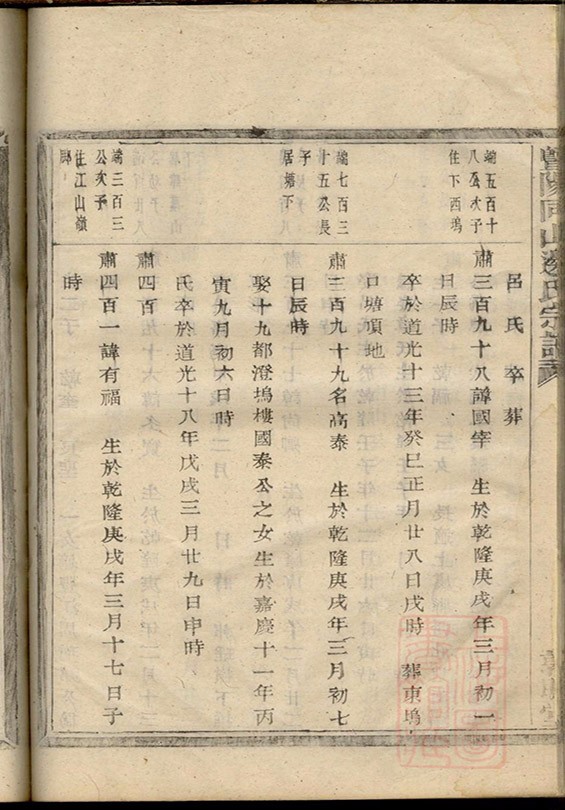 暨陽同山邊氏宗譜
呂氏卒葬
端五百十
八公次子
住下西塢
肅三百九十八諱國宰 生於乾隆庚戌年三月初一
日辰時
卒於道光十三年癸巳正月廿八日戌時 葬東塢
口塘墳地
端七百三
十五公長
子
居塘下
肅三百九十九名高泰 生於乾隆庚戌年三月初七
日辰時
娶十九都澄塢樓國泰公之女生於嘉慶十一年丙
寅九月初六日時
氏卒於道光十八年戊戌三月廿九日申時
肅四百
端三百三
公次子
住江山嶺
肅四百一諱有福 生於乾隆庚戌年三月十七日子
時